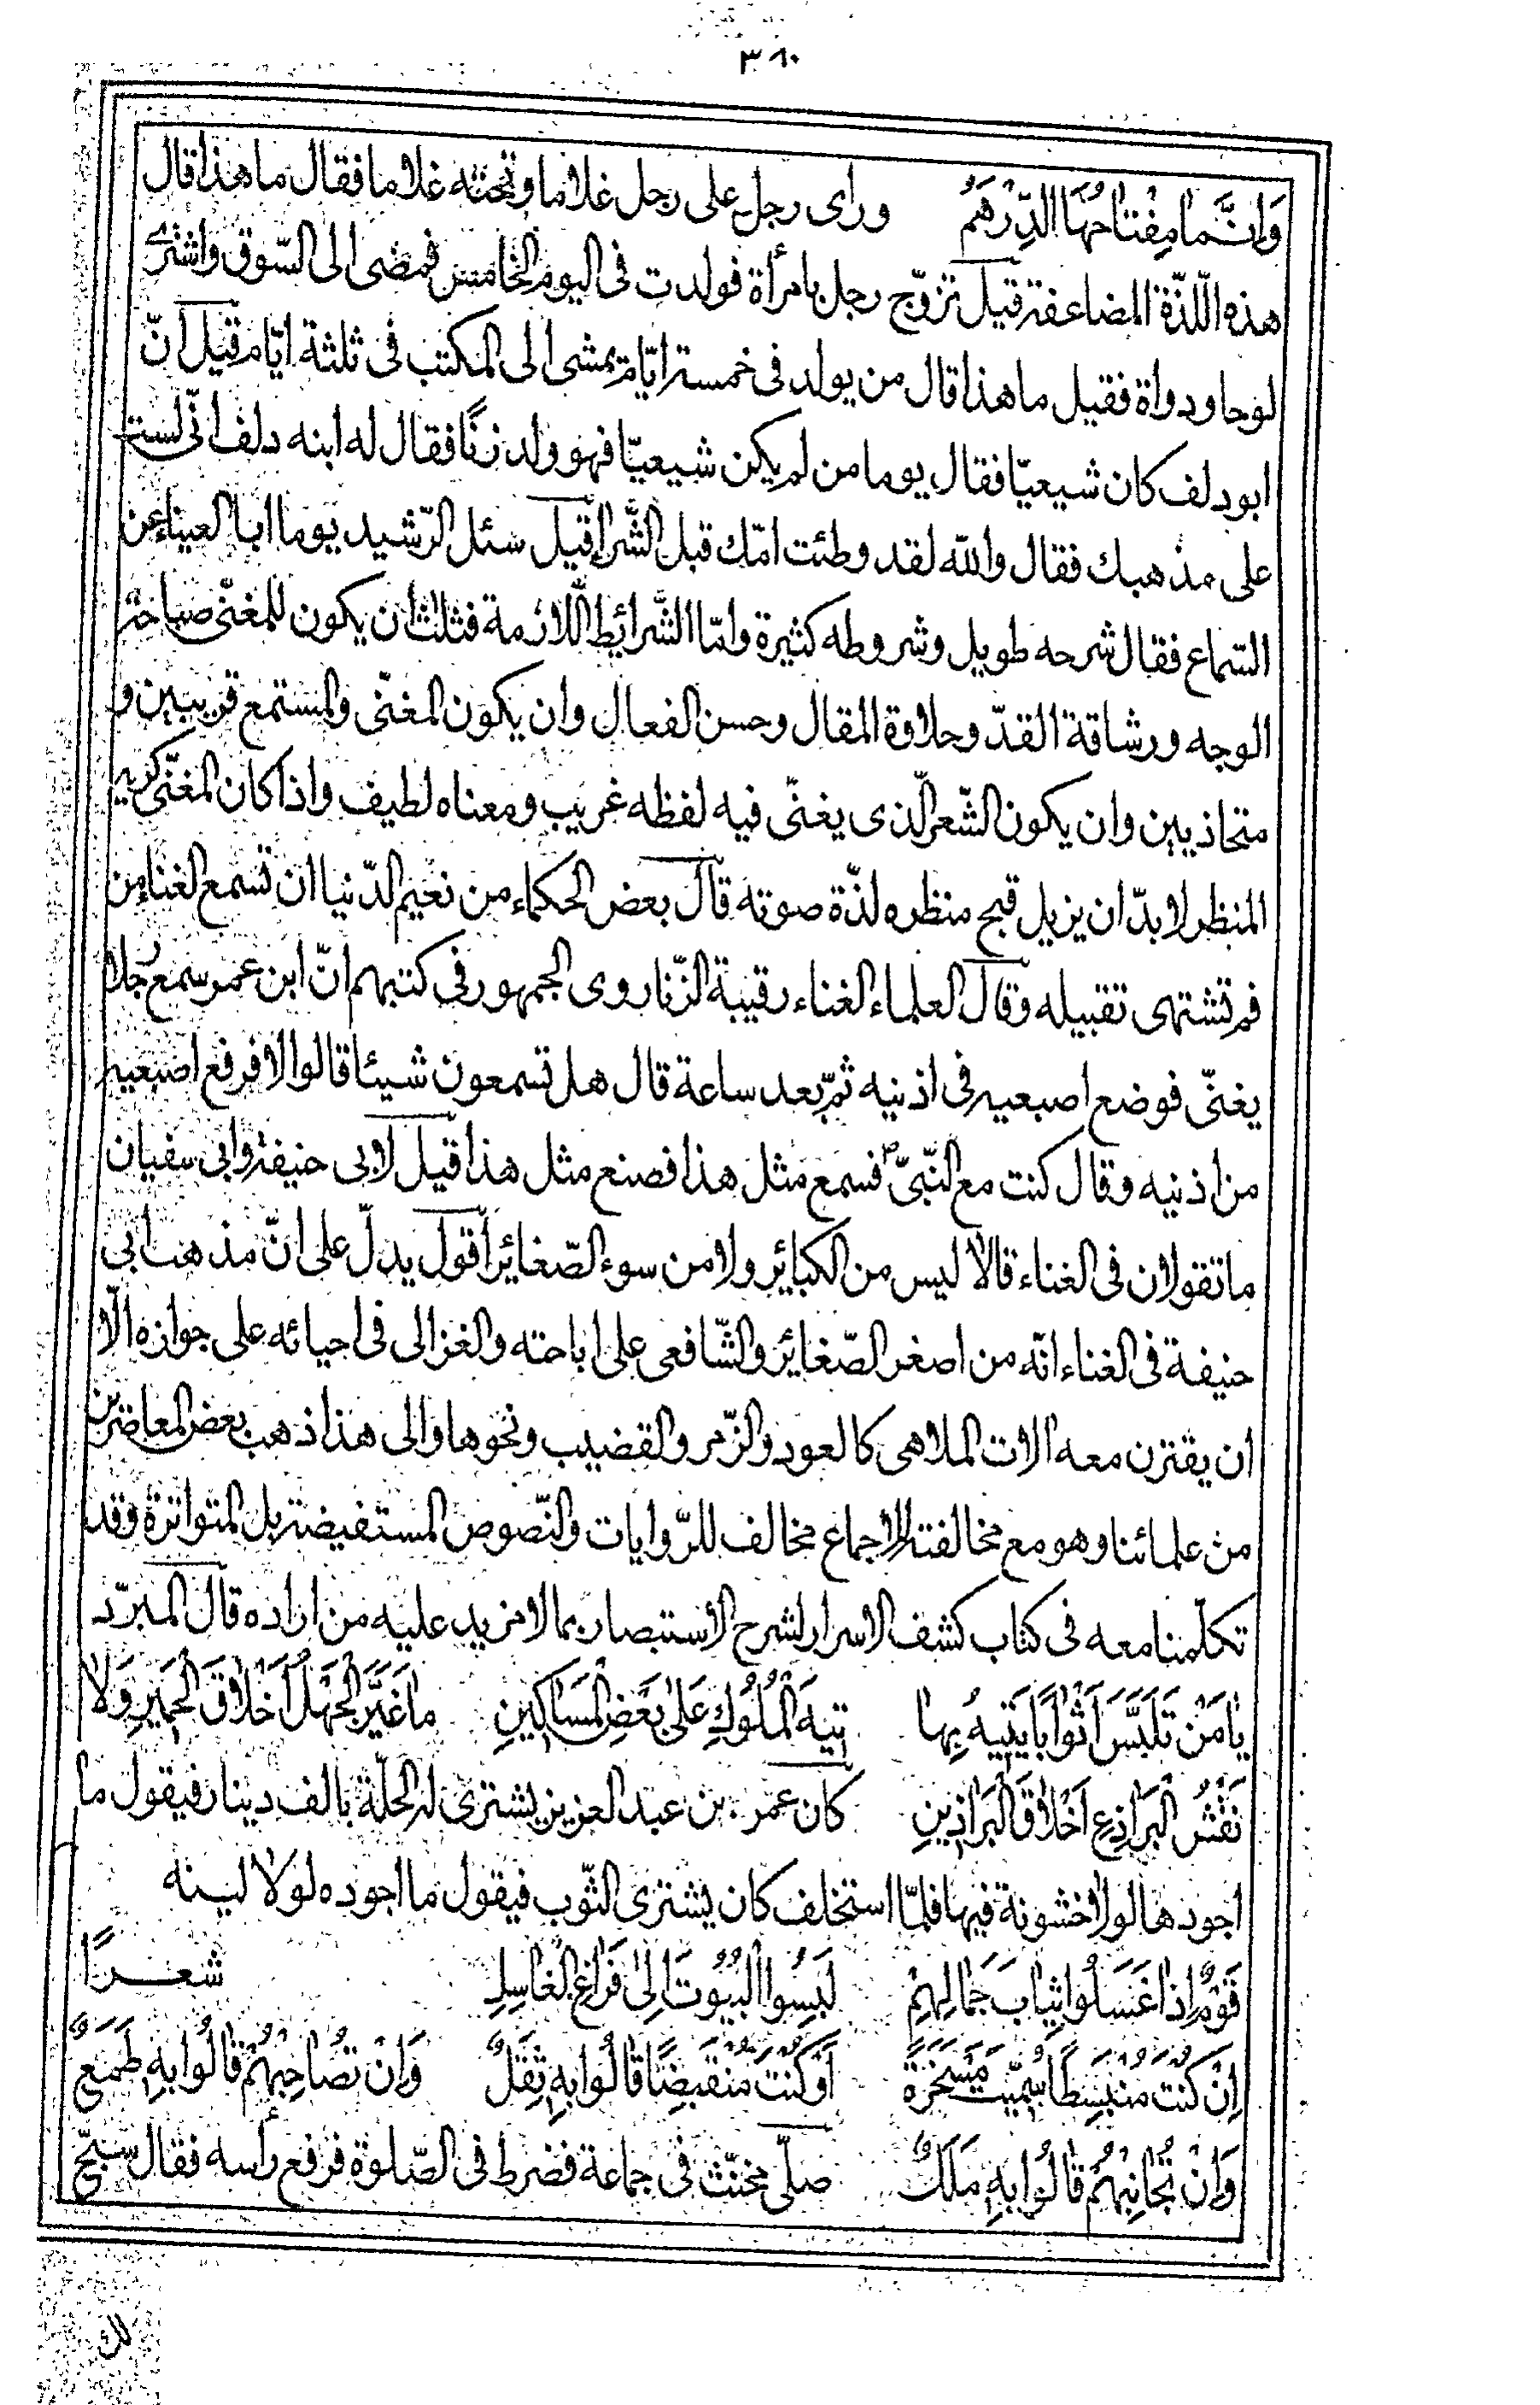 ٣٨٠
وَاِنَّمَا مِفْتَاحُهَا الدِّرْهَمُ ورأى رجل على رجل غلاما وتحته غلاما فقال ما هذا قال
هذه اللّذّة المضاعفة قيل تزوّج رجل بامرأة فولدت فى اليوم الخامس فمضى الى السّوق واشترى
لوحا ودواة فقيل ما هذا قال من يولد فى خمسة ايّام يمشى الى المكتب فى ثلثة ايّام قيل انّ
ابو دلف كان شيعيّا فقال يوما من لم يكن شيعيّا فهو ولد زنًا فقال له ابنه دلف انّى لست
على مذهبك فقال والله لقد وطئت امّك قبل الشّراء قيل سئل الرّشيد يوما ابا العيناء عن
السّماع فقال شرحه طويل وشروطه كثيرة وامّا الشّرائط اللّازمة فثلث ان يكون للمغنّى صباحة
الوجه ورشاقة القدّ وحلاوة المقال وحسن الفعال وان يكون المغنّى والمستمع قريبين و
متحاذيين وان يكون الشّعر الّذى يغنّى فيه لفظه غريب ومعناه لطيف واذا كان المغنّى كريه
المنظر لا بدّ ان يزيل قبح منظره لذّة صوته قال بعض الحكماء من نعيم الدّنيا ان تسمع الغناء من
فم تشتهى تقبيله وقال العلماء الغناء رقية الزّنا روى الجمهور فى كتبهم انّ ابن عمر سمع رجلا
يغنّى فوضع اصبعيه فى اذنيه ثمّ بعد ساعة قال هل تسمعون شيئا قالوا لا فرفع اصبعيه
من اذنيه وقال كنت مع النّبىّ ص فسمع مثل هذا فصنع مثل هذا قيل لابى حنيفة وابى سفيان
ما تقولان فى الغناء قالا ليس من الكبائر ولا من سوء الصّغائر اقول يدلّ على انّ مذهب ابى
حنيفة فى الغناء انّه من اصغر الصّغائر والشّافعى على اباحته والغزالى فى احيائه على جوازه الّا
ان يقترن معه الات الملاهى كالعود والزّمر والقضيب ونحوها والى هذا ذهب بعض المعاصرين
من علمائنا وهو مع مخالفته للاجماع مخالف للرّوايات والنّصوص المستفيضة بل المتواترة وقد
تكلّمنا معه فى كتاب كشف الاسرار لشرح الاستبصار بما لا مزيد عليه من اراده قال المبرّد
يَا مَنْ تَلَبَّسَ اَثْوَابًا يَتِيهُ بِهَا تِيهَ الْمُلُوكِ عَلَى بَعْضِ الْمَسَاكِينِ مَا غَيَّرَ الْجَهْلُ اَخْلَاقَ الْحَمِيرِ وَلَا
نَقْشُ الْبَرَاذِعِ اَخْلَاقَ الْبَرَاذِينِ كان عمر بن عبد العزيز يشترى له الحلّة بالف دينار فيقول ما
اجودها لولا خشونة فيها فلمّا استخلف كان يشترى الثّوب فيقول ما اجوده لولا لينه
قَوْمٌ اِذَا غَسَلُوا ثِيَابَ جَمَالِهِمْ لَبِسُوا الْبُيُوتَ اِلَى فَرَاغِ الْغَاسِلِ شعرًا
اِنْ كُنْتُ مُنْبَسِطًا سُمِّيتُ مَسْخَرَةً اَوْ كُنْتُ مُنْقَبِضًا قَالُوا بِهِ ثِقَلٌ وَاِنْ تُصَاحِبْهُمْ قَالُوا بِهِ طَمَعٌ
وَاِنْ تُجَانِبْهُمْ قَالُوا بِهِ مَلَكٌ صلّى مخنّث فى جماعة فضرط فى الصّلوة فرفع رأسه فقال سبّح
لك